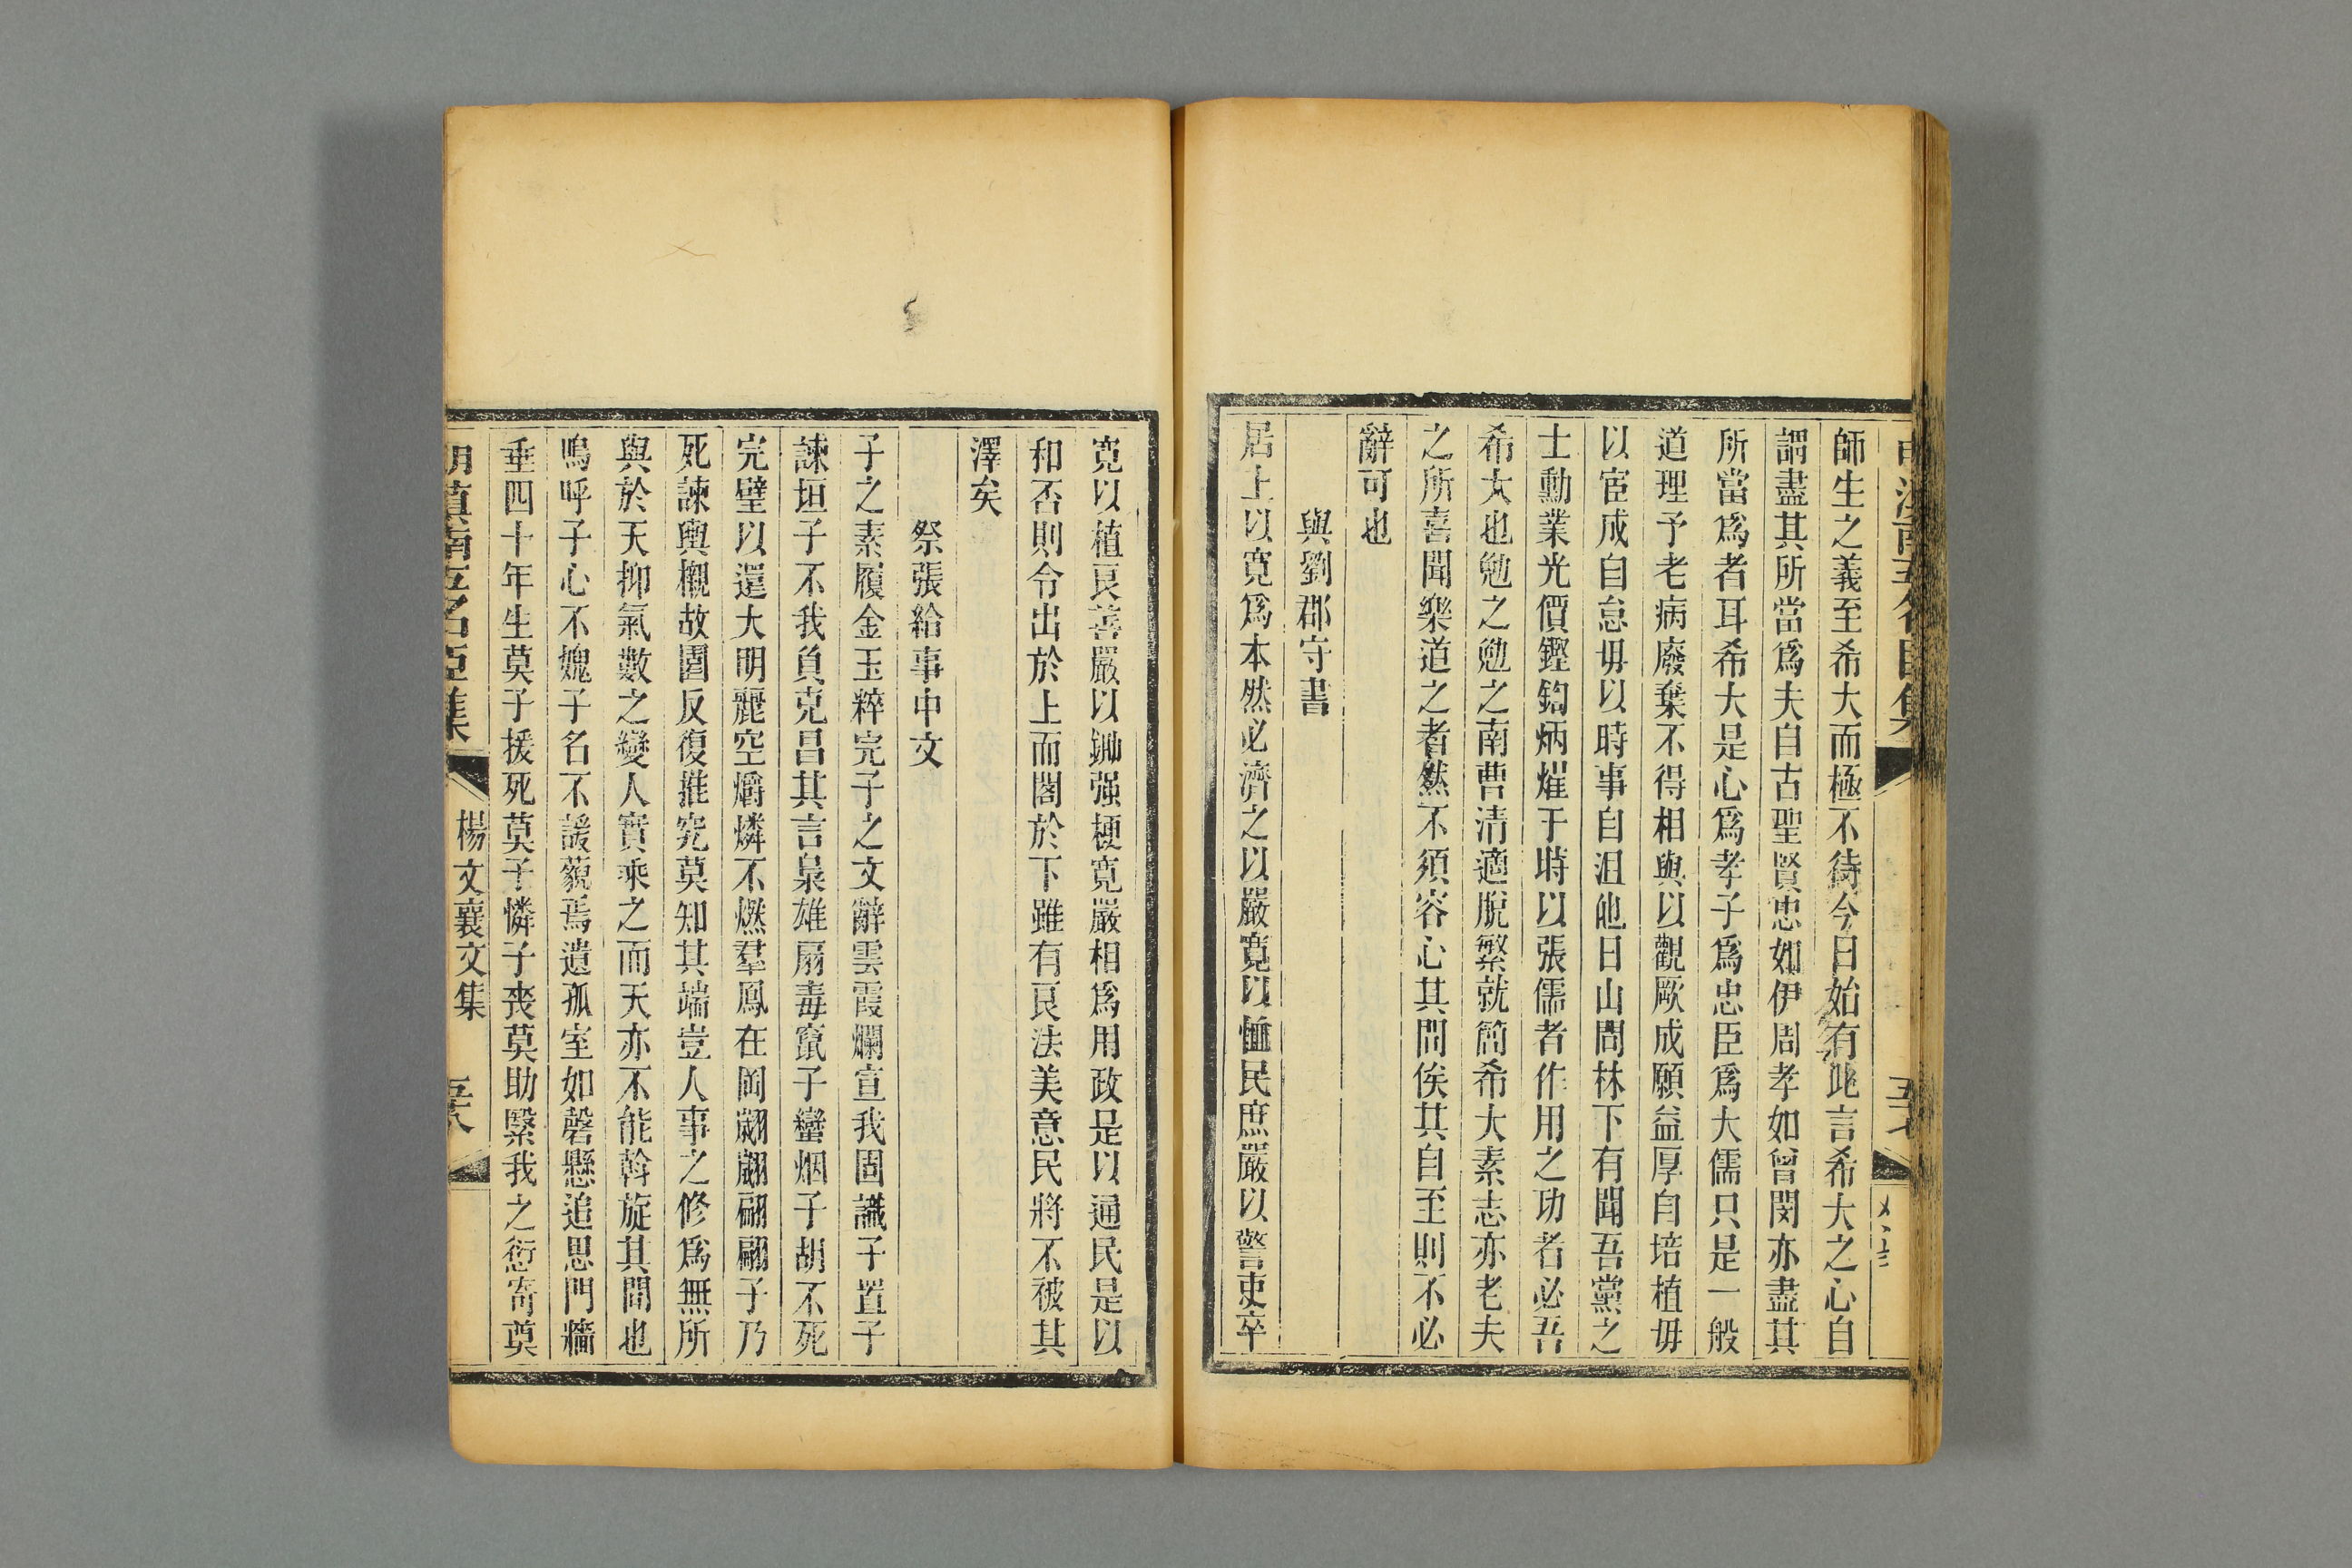 師生之義至希大而極不待今日始有此言希大之心自
謂盡其所當爲夫自古聖賢忠如伊周孝如曾閔亦盡其
所當爲者耳希大是心爲孝子爲忠臣爲大儒只是一般
道理予老病廢棄不得相與以觀厥成願益厚自培植毋
以宦成自怠毋以時事自沮他日山間林下有聞吾黨之
士勳業光價鏗鍧炳燿于時以張儒者作用之功者必吾
希大也勉之勉之南曹清適脫繁就簡希大素志亦老夫
之所喜聞樂道之者然不須容心其間俟其自至則不必
辭可也
與劉郡守書
居上以寛爲本然必濟之以嚴寛以恤民庶嚴以警吏卒
寛以植良善嚴以鋤强梗寛嚴相爲用政是以通民是以
和否則令出於上而閣於下雖有良法美意民將不被其
澤矣
祭張給事中文
子之素履金玉粹完子之文辭雲霞爛宣我固識子置子
諫垣子不我負克昌其言梟雄扇毒竄子蠻烟子胡不死
完璧以還大明麗空爝燐不燃羣鳳在岡翽翽翩翩子乃
死諫輿櫬故園反復推究莫知其端豈人事之修爲無所
與於天抑氣數之變人實乘之而天亦不能斡旋其間也
嗚呼子心不媿子名不諼藐焉遺孤室如磬懸追思門牆
垂四十年生莫子援死莫子憐子喪莫助緊我之愆寄奠
明滇南五名臣集
楊文襄文集
五六